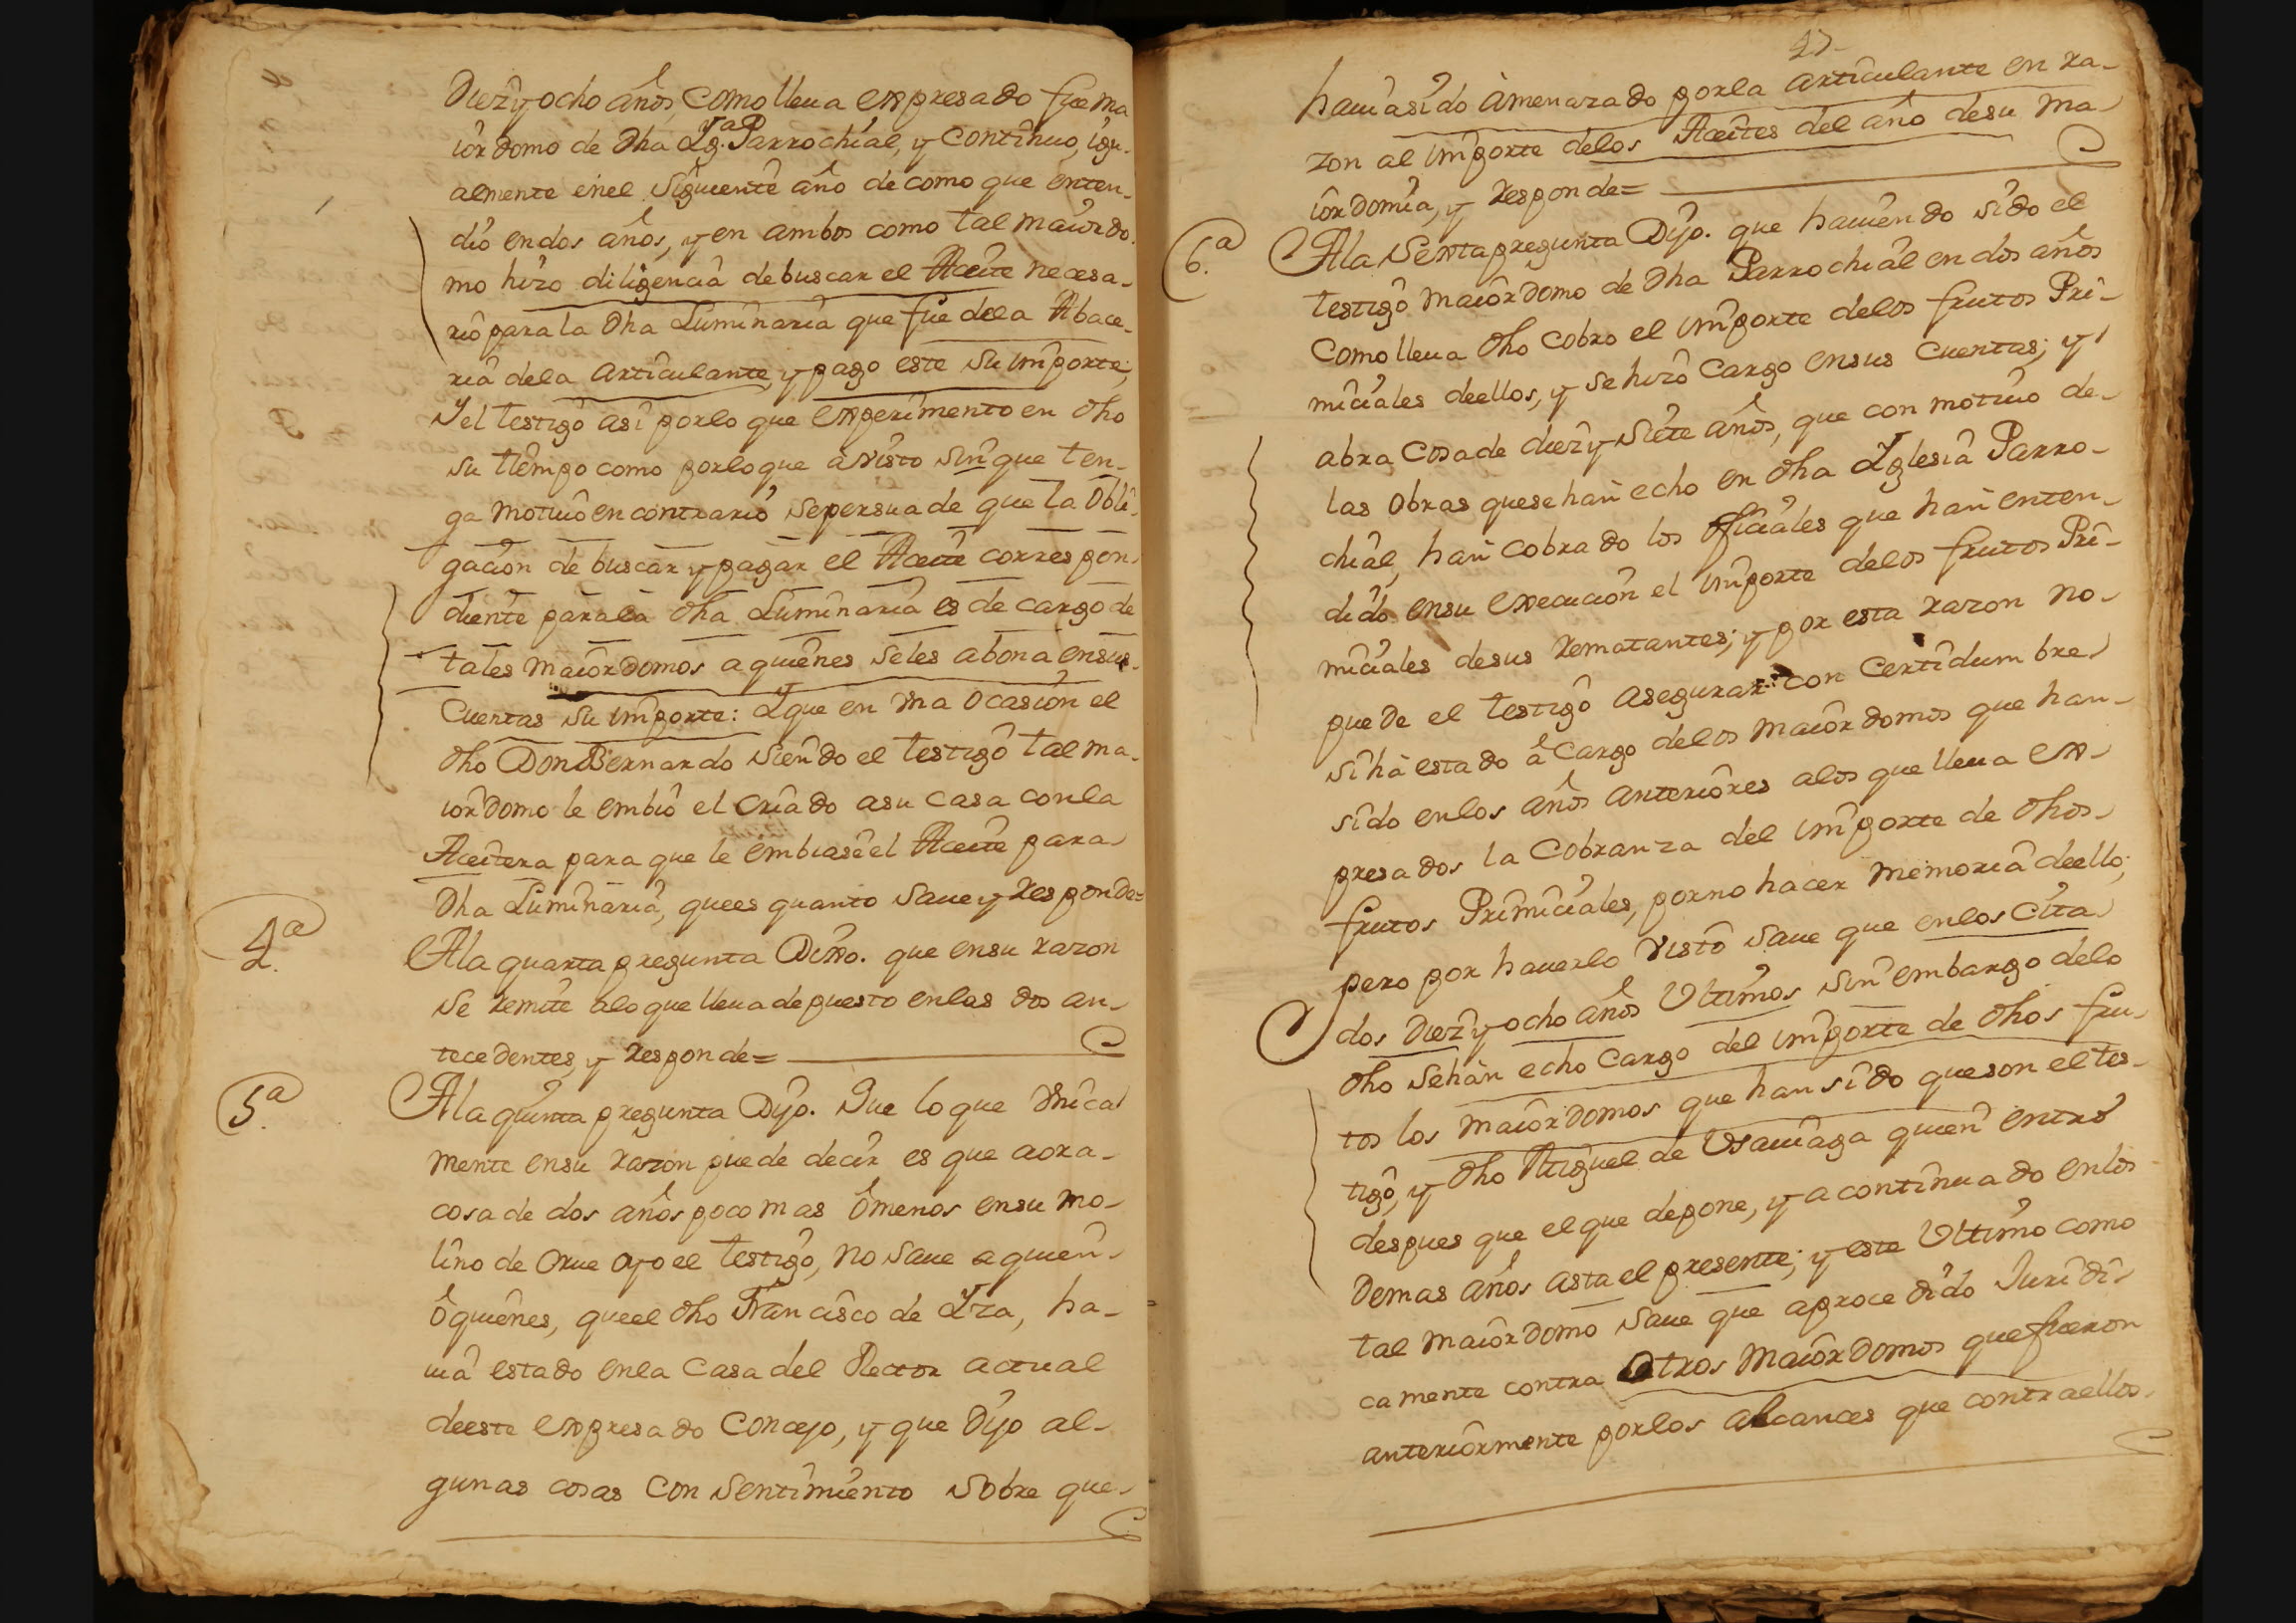 Diez y ocho años, como lleua expresado fue ma
iordomo de Dha Yg.ª Parrochial, y continuo, igu-
almente en el siguiente año de como que enten-
dio en dos años, y en ambos como tal maiordo-
mo hizo diligencia de buscar el Aceite necesa-
rio para la Dha Luminaria que fue de la Abace-
ria dela articulante, y pago este su importe;
Y el testigo asi por lo que experimento en dho
su tiempo como por lo que a visto sin que ten-
ga motiuo en contrario se persuade que la obli-
gacion de buscar y pagar el Aceite correspon-
diente para la dha Luminaria es de cargo de
tales maiordomos a quienes se les abona en sus
Cuentas su importe: Y que en vna ocasion el
dho Don Bernardo siendo el testigo tal ma-
iordomo le embio el criado a su casa con la
Aceitera para que le embiase el Aceite para
Dha Luminaria, que es quanto saue y Responde=
4ª
A la quarta pregunta Dixo. que en su razon
se remite alo que lleua depuesto en las dos an-
tecedentes, y Responde=
5ª
A la quinta pregunta Dijo. Que lo que vnica
mente en su razon puede decir es que aora-
cosa de dos años poco mas ô menos en su mo-
lino de Orue oyo el testigo, no saue a quien
ô quienes, que el dho Francisco de Yza, ha-
uia estado en la Casa del Rector actual
de este expresado Concejo, y que Dijo al-
gunas cosas con sentimiento sobre que
47
hauia sido amenazado por la articulante en ra-
zon al importe delos Aceites del año de su ma
iordomia, y Responde=
6.ª
A la Sexta pregunta Dijo. que hauiendo sido el
testigo maiordomo de Dha Parrochial en dos años
Como lleua dho cobro el importe delos frutos Pri-
miciales de ellos, y se hizo Cargo en sus Cuentas; y
abra cosa de diez y siete años, que con motiuo de
las obras que se han echo en dha Yglesia Parro-
chial, han cobrado los oficiales que han enten-
dido en su execucion el importe delos frutos Pri-
miciales de sus Rematantes; y por esta razon no-
puede el testigo asegurar con Certidumbre
si ha estado â Cargo delos maiordomos que han-
sido en los años anteriores alos que lleua ex-
presados la Cobranza del importe de dhos
frutos Primiciales, por no hacer memoria de ello;
pero por hauerlo visto saue que en los cita
dos Diez y ocho años vltimos sin embargo delo
dho se han echo Cargo del importe de dhos fru-
tos los maiordomos que han sido que son el tes-
tigo, y dho Miguel de Vsauiaga quien entró
despues que el que depone, y a continuado en los
Demas años asta el presente; y este vltimo como
tal maiordomo saue que a procedido Juridi-
camente contra otros Maiordomos que fueron
anteriormente por los alcances que contra ellos